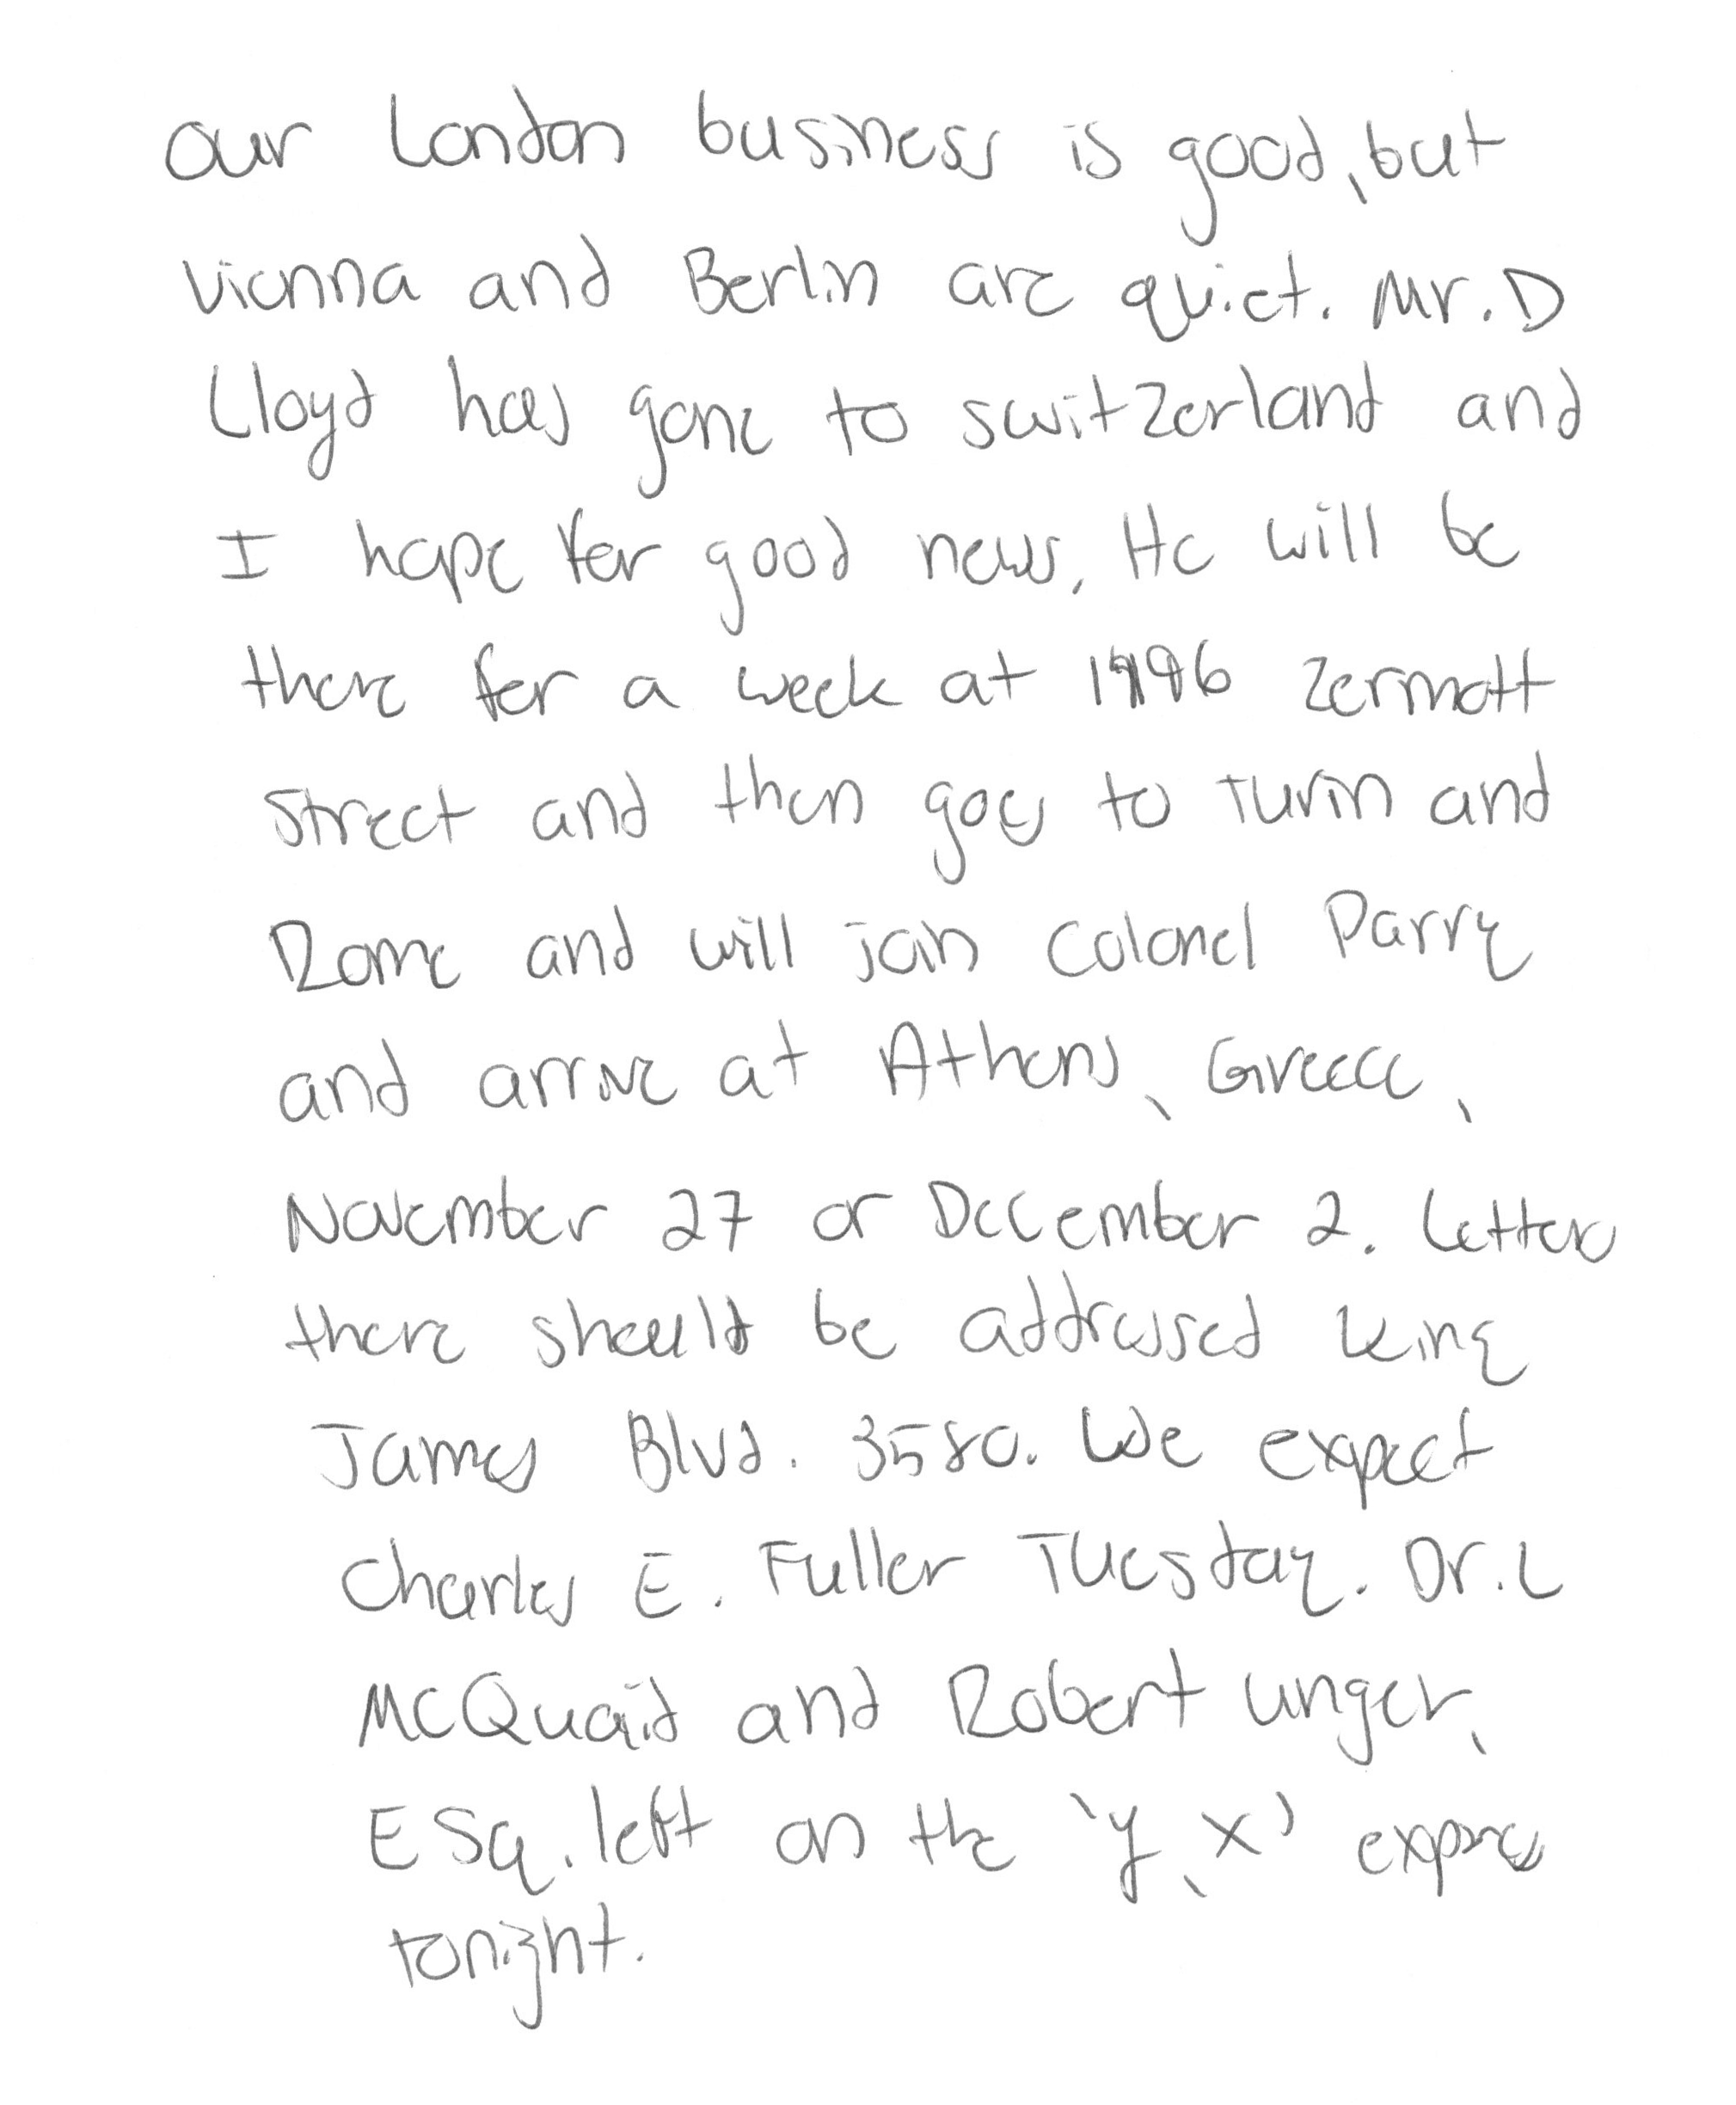 our London business is good, but
Vienna and Berlin are quiet. Mr. D
Lloyd has gone to Switzerland and
I hope for good news. He will be
there for a week at 1996 Zermott
street and then goes to Turin and
Rome and will join Colonel Parry
and arrive at Athens, Greece,
November 27 or December 2. Letters
there should be addressed King
James Blvd. 3580. We expect
Charles E. Fuller Tuesday. Dr. L
McQuaid and Robert unger,
ESq. left on the 'y, X' express
tonight.